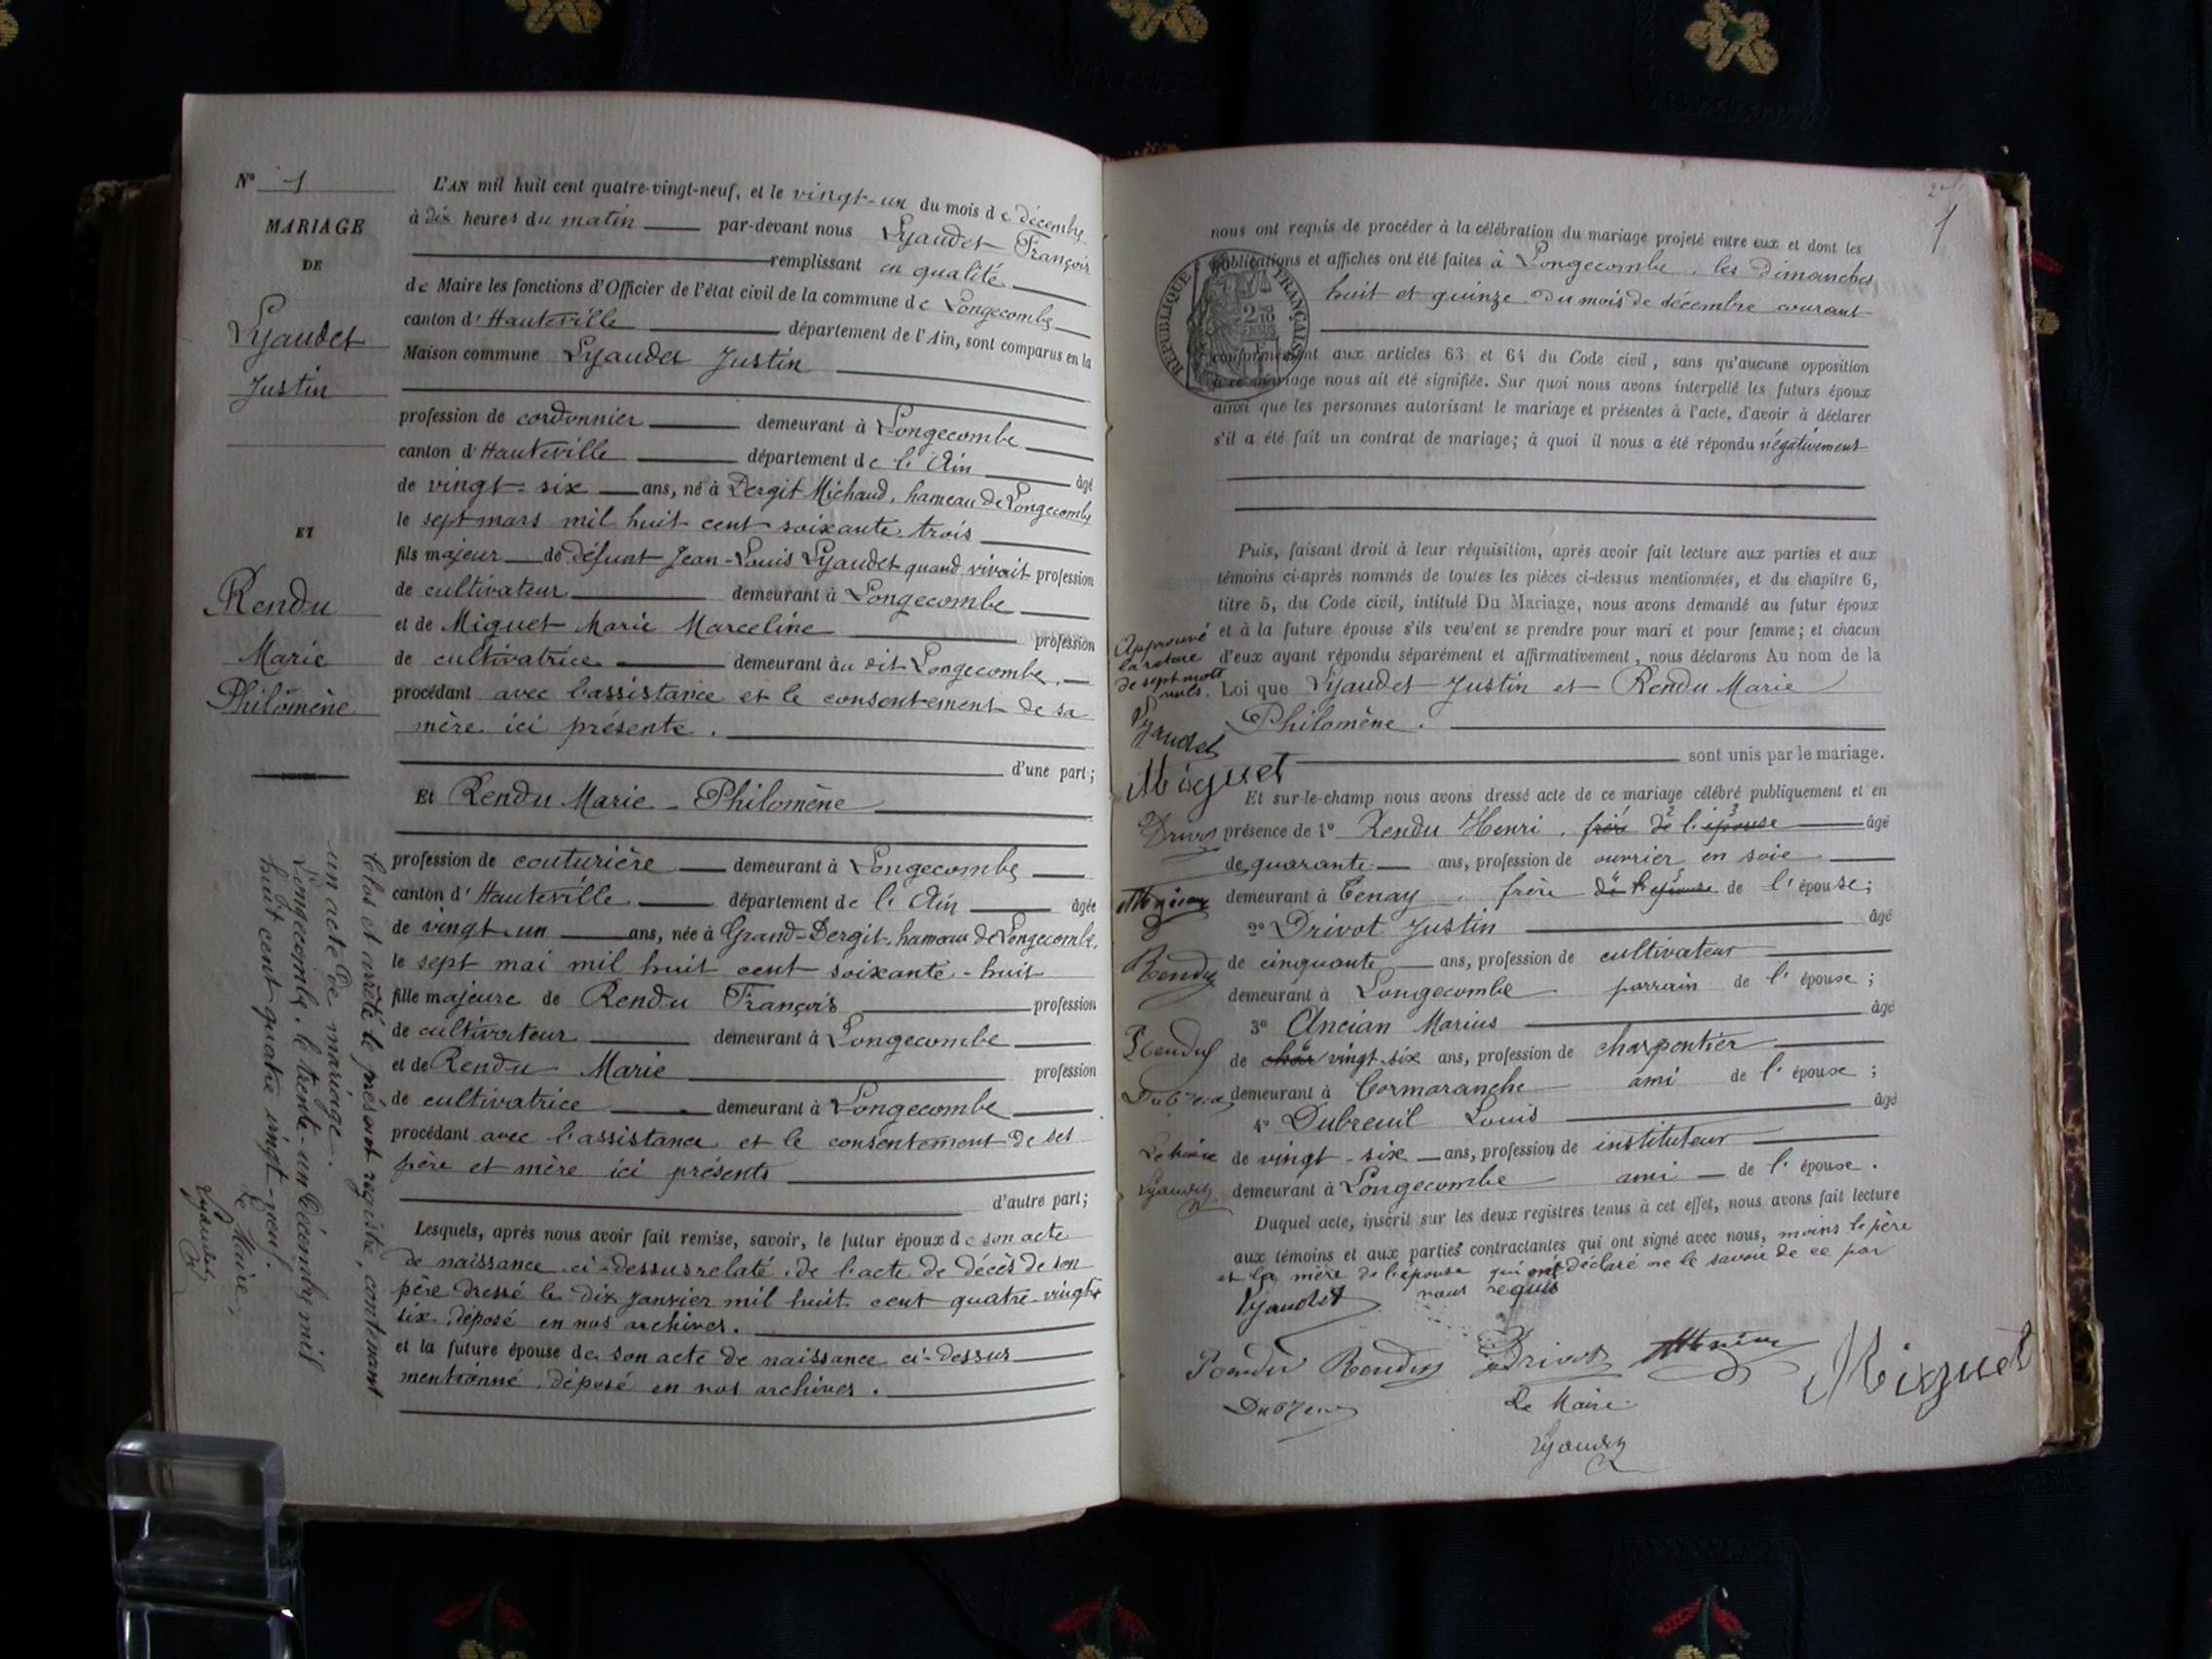 N° 1
MARIAGE
DE
Lyaudet
Justin
ET
Rendu
Marie
Philomène
L'AN mil huit cent quatre-vingt-neuf, et le vingt-un du mois de décembre
à dix heures du matin par-devant nous Lyaudet François
remplissant en qualité
de Maire les fonctions d'Officier de l'état civil de la commune de Longecombe
canton d'Hauteville département de l'Ain, sont comparus en la
Maison commune Lyaudet Justin
profession de cordonnier demeurant à Longecombe
canton d'Hauteville département de l'Ain âgé
de vingt-six ans, né à Dergit Michaud, hameau de Longecombe
le sept mars mil huit cent soixante-trois
fils majeur de défunt Jean-Louis Lyaudet quand vivait profession
de cultivateur demeurant à Longecombe
et de Miguet Marie Marceline profession
de cultivatrice demeurant àu dit Longecombe.
procédant avec l'assistance et le consentement de sa
mère ici présente.
d'une part;
Et Rendu Marie-Philomène
profession de couturière demeurant à Longecombe
canton d'Hauteville département de l'Ain âgée
de vingt-un ans, née à Grand-Dergit, hameau de Longecombe,
le sept mai mil huit cent soixante-huit
fille majeure de Rendu François profession
de cultivateur demeurant à Longecombe
et de Rendu Marie profession
de cultivatrice demeurant à Longecombe
procédant avec l'assistance et le consentement de ses
père et mère ici présents
d'autre part;
Lesquels, après nous avoir fait remise, savoir, le futur époux de son acte
de naissance ci-dessus relaté, de l'acte de décès de son
père dressé le dix janvier mil huit cent quatre-vingt
six, déposé en nos archives.
et la future épouse de son acte de naissance ci-dessus
mentionné, déposé en nos archives.
Clos et arrêté le présent registre, contenant
un acte de mariage.
Longecombe, le trente-un décembre mil
huit cent quatre vingt-neuf.
Le Maire,
Lyaudet
1
nous ont requis de procéder à la célébration du mariage projeté entre eux et dont les
publications et affiches ont été faites à Longecombe, les dimanches
huit et quinze du mois de décembre courant
RÉPUBLIQUE FRANÇAISE
conformément aux articles 63 et 64 du Code civil, sans qu'aucune opposition
à ce mariage nous ait été signifiée. Sur quoi nous avons interpellé les futurs époux
ainsi que les personnes autorisant le mariage et présentes à l'acte, d'avoir à déclarer
s'il a été fait un contrat de mariage; à quoi il nous a été répondu négativement
Puis, faisant droit à leur réquisition, après avoir fait lecture aux parties et aux
témoins ci-après nommés de toutes les pièces ci-dessus mentionnées, et du chapitre 6,
titre 5, du Code civil, intitulé Du Mariage, nous avons demandé au futur époux
et à la future épouse s'ils veulent se prendre pour mari et pour femme; et chacun
d'eux ayant répondu séparément et affirmativement, nous déclarons Au nom de la
Loi que Lyaudet Justin et Rendu Marie
Philomène.
sont unis par le mariage.
Approuvé
la rature
de sept mots
nuls.
Lyaudet
Miguet
Drivot
Rendu
Rendu
Dubreuil
Le Maire
Lyaudet
Et sur-le-champ nous avons dressé acte de ce mariage célébré publiquement et en
présence de 1° Rendu Henri, frère de l'épouse âgé
de quarante ans, profession de ouvrier en soie
demeurant à Tenay, frère de l'épouse de l'épouse;
2° Drivot Justin âgé
de cinquante ans, profession de cultivateur
demeurant à Longecombe parrain de l'épouse;
3° Ancian Marius âgé
de vingt-six ans, profession de charpentier
demeurant à Cormaranche ami de l'épouse;
4° Dubreuil Louis âgé
de vingt-six ans, profession de instituteur
demeurant à Longecombe ami de l'épouse.
Duquel acte, inscrit sur les deux registres tenus à cet effet, nous avons fait lecture
aux témoins et aux parties contractantes qui ont signé avec nous, moins le père
et la mère de l'épouse qui ont déclaré ne le savoir de ce par
nous requis
Lyaudet
Rendu Rendu Drivot Miguet
Dubreuil
Le Maire
Lyaudet